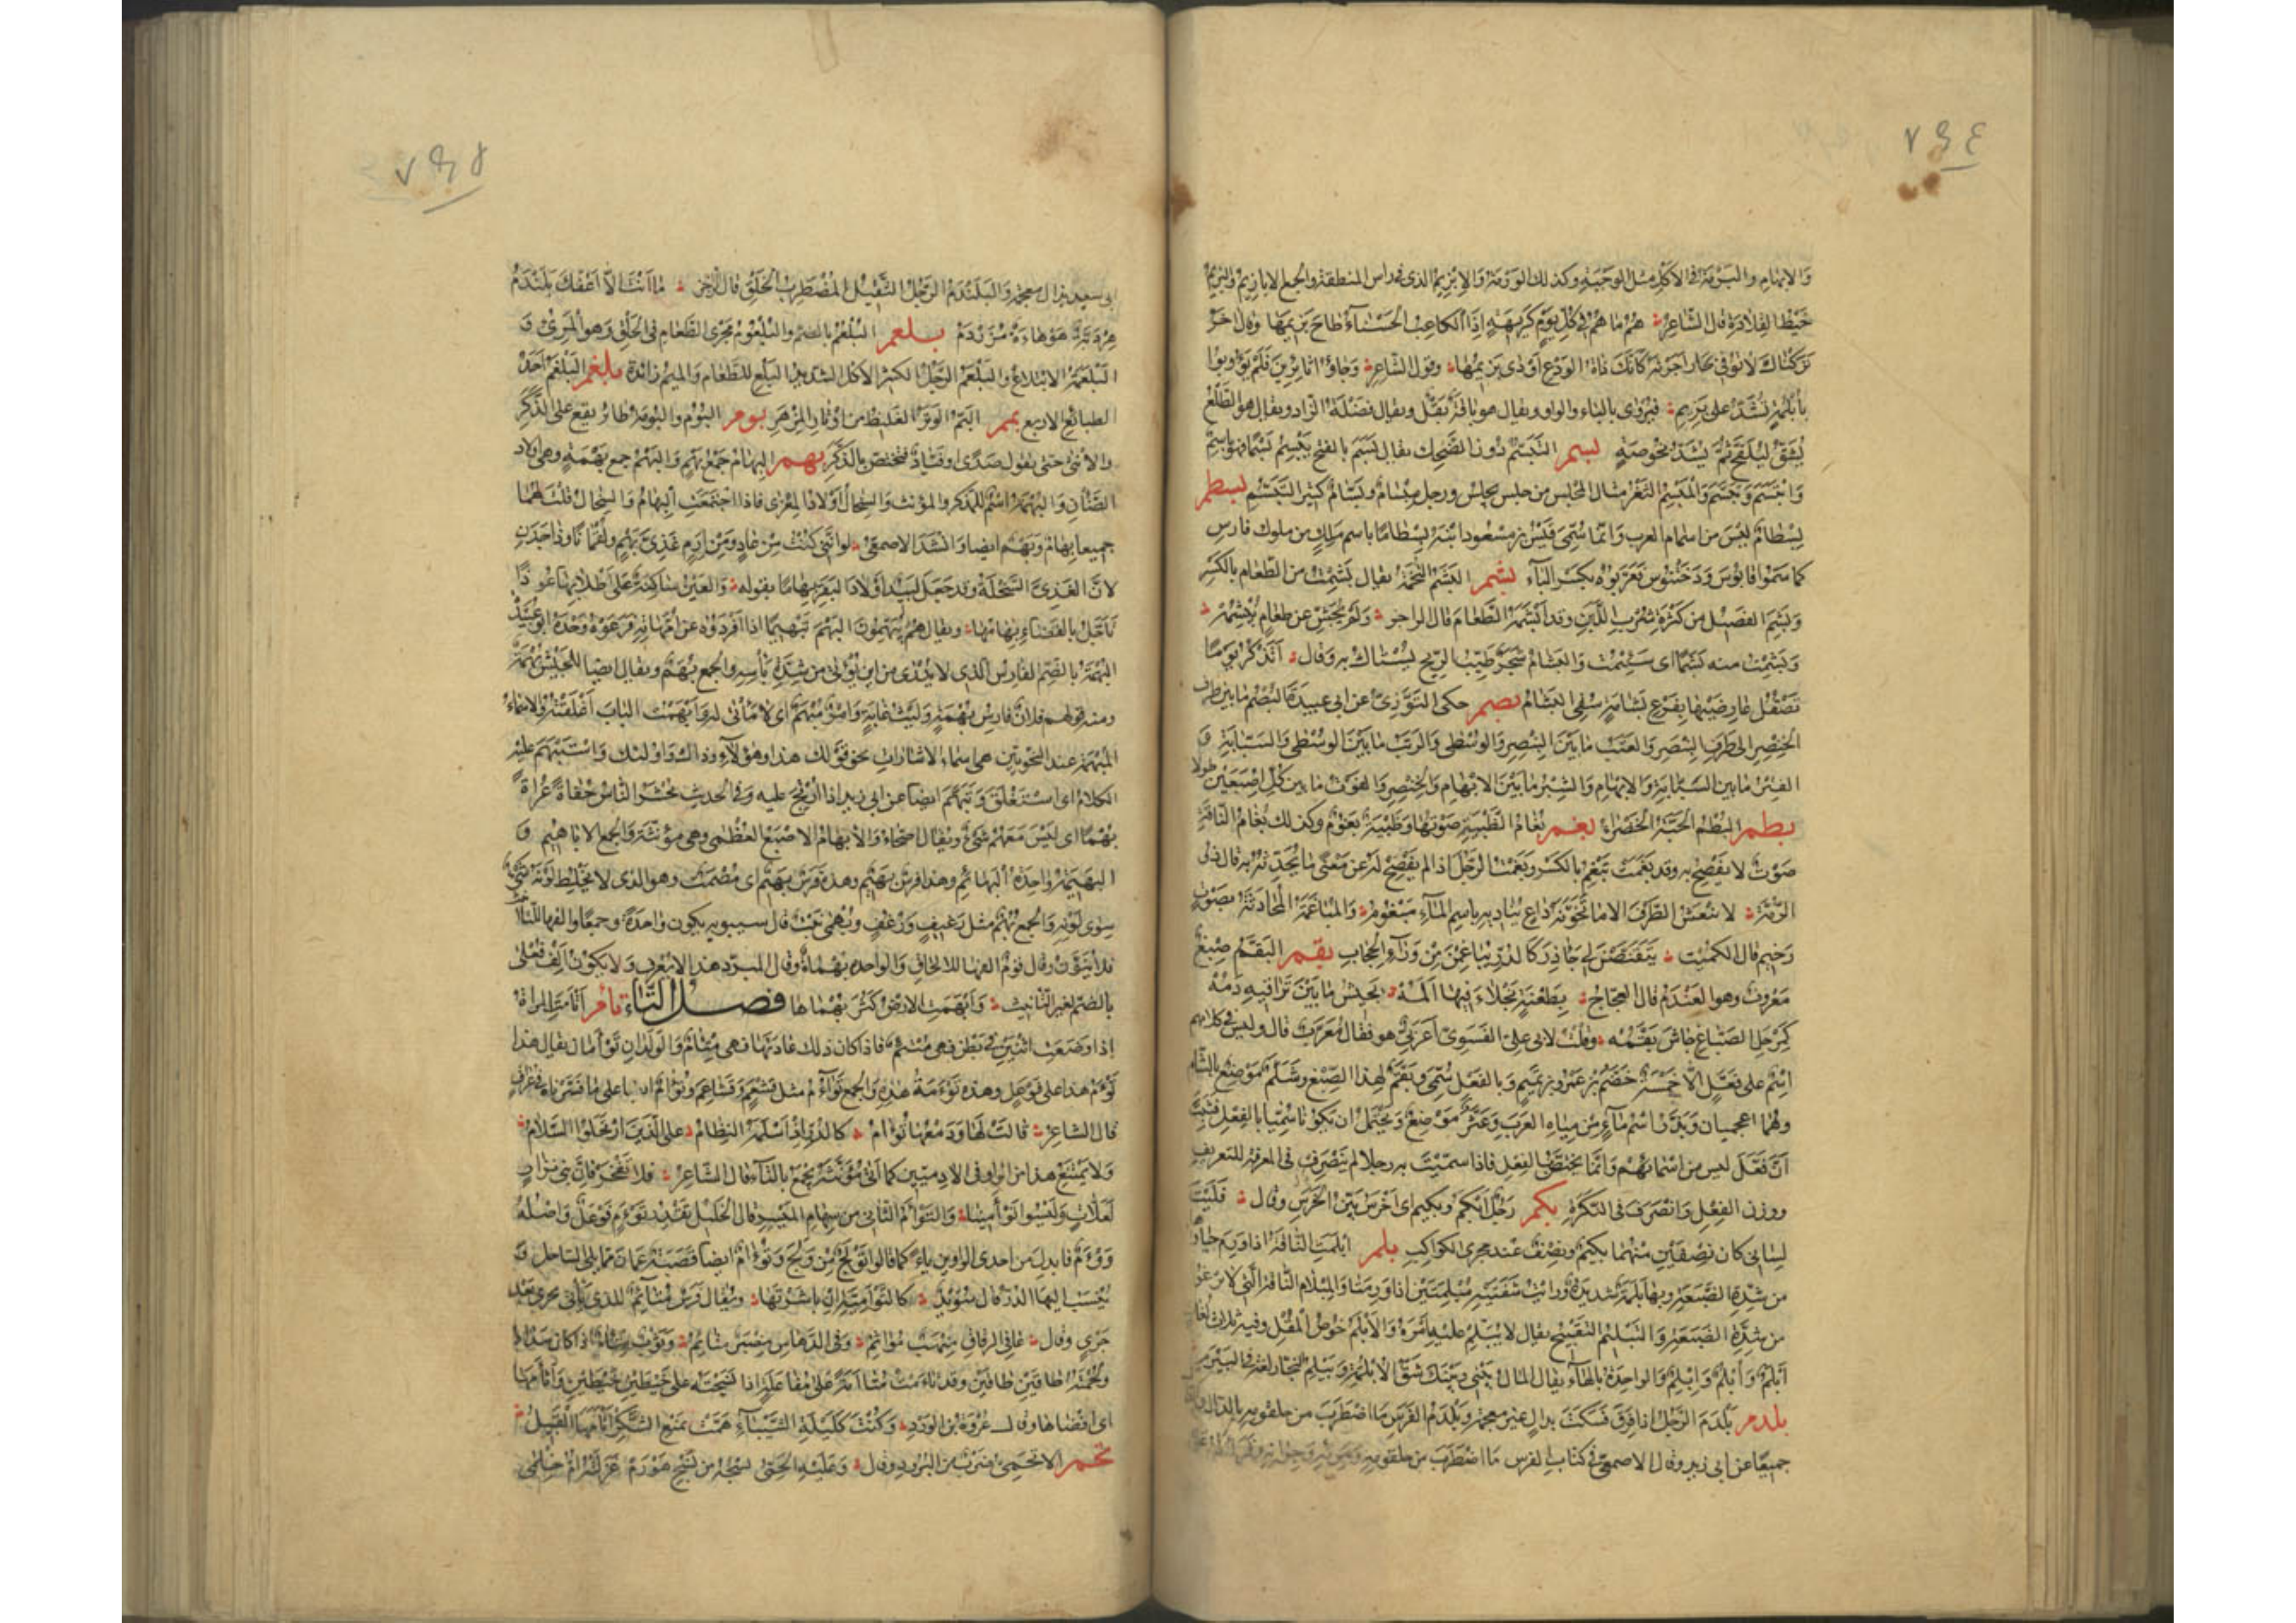 ٧٩٤
والابهام والبزمة فى الاكل مثل الوجبة وكذلك الوزمة والابزيم الذى فى راس المنطقة والجمع الابازيم والبريم
خيط القلادة قال الشاعر هم ما هم فى كل يوم كريهة اذا الكاعب الحسناء طاح بريمها وقال آخر
تركناك لا توفى بجار اجرته كانك ذات الودع اودى بريمها وقول الشاعر وجاؤا ثائرين فلم يؤوبوا
بابلمة تشد على بزيم فيروى بالباء والواو ويقال هو باقة بقل ويقال فضلة الزاد ويقال هو الطلع
يشق ليلقح ثم يشد بخوصة بسم التبسم دون الضحك يقال بسم بالفتح يبسم بسما فهو باسم
وابتسم وتبسم والمبسم الثغر مثال المجلس من جلس يجلس ورجل مبسام وبسام كثير التبسم بسطم
بسطام ليس من اسماء العرب وانما سمى قيس بن مسعود ابنه بسطاما باسم ملك من ملوك فارس
كما سموا قابوس ودختنوس فعربوه بكسر الباء بشم البشم التخمة يقال بشمت من الطعام بالكسر
وبشم الفصيل من كثرة شرب اللبن وقد ابشمه الطعام قال الراجز ولم يجشئ عن طعام يبشمه
وبشمت منه بشما اى سئمت والبشام شجر طيب الريح يستاك به وقال اتذكر يوما
تصقل عارضيها بفرع بشامة سقى البشام بصم حكى التوزى عن ابى عبيدة البصم ما بين طرف
الخنصر الى طرف البنصر والعتب ما بين البنصر والوسطى والرتب ما بين الوسطى والسبابة و
الفتر ما بين السبابة والابهام والشبر ما بين الابهام والخنصر والفوت ما بين كل اصبعين طولا
بطم البطم الحبة الخضراء بغم بغام الظبية صوتها وظبية بغوم وكذلك بغام الناقة
صوت لا يفصح به وقد بغمت تبغم بالكسر وبغمت الرجل اذا لم يفصح له عن معنى ما يحدثه به قال ذو
الرمة لا ينعش الطرف الا ما تخونه داع يناديه باسم الماء مبغوم والمباغمة المحادثة بصوت
رخيم قال الكميت يتقنصن لى جآذر كالدر يباغمن من وراء الحجاب بقم البقم صبغ
معروف وهو العندم قال العجاج بطعنة نجلاء فيها المه يجيش ما بين تراقيه دمه
كمرجل الصباغ جاش بقمه وقلت لابى على الفسوى اعربى هو فقال معرب قال وليس فى كلامهم
اسم على فعل الا خمسة خضم بن عمرو بن تميم وبالفعل سمى وبقم لهذا الصبغ وشلم موضع بالشام
وهما اعجميان وبذر اسم ماء من مياه العرب وعثر موضع ويحتمل ان يكونا سميا بالفعل فثبت
ان فعل ليس من اسمائهم وانما يختص بالفعل فاذا سميت به رجلا لم ينصرف فى المعرفة للتعريف
ووزن الفعل وانصرف فى النكرة بكم رجل ابكم وبكيم اى اخرس بين الخرس وقال فليت
لسانى كان نصفين منهما بكيم ونصف عند مجرى الكواكب بلم ابلمت الناقة اذا ورم حياؤها
من شدة الضبعة وبها بلمة شديدة ورايت شفتيه مبلمتين اذا ورمتا والمبلام الناقة التى لا ترغو
من شدة الضبعة والتبليم التقبيح يقال لا تبلم عليه امره والابلم خوص المقل وفيه ثلاث لغات
ابلم وابلم وابلم والواحدة بالهاء يقال المال بينى وبينك شق الابلمة وبيلم النجار لغة فى البيرم
بلدم بلدم الرجل اذا فرق فسكت بدال غير معجمة وبلدم الفرس ما اضطرب من حلقومه بالدال
جميعا عن ابى زيد وقال الاصمعى فى كتاب الفرس ما اضطرب من حلقومه ومريئه وجرانه
٧٩٥
ابى سعيد بذال معجمة والبلندم الرجل الثقيل المضطرب الخلق قال الآخر ما انت الا اعفك بلندم
هردبة هوهاءة مزردم بلعم البلعم بالضم والبلعوم مجرى الطعام فى الحلق وهو المرىء و
البلعمة الابتلاع والبلعم الرجل الكثير الاكل الشديد البلع للطعام والميم زائدة بلغم البلغم احد
الطبائع الاربع بمم البم الوتر الغليظ من اوتار المزهر بوم البوم والبومة طائر يقع على الذكر
والانثى حتى يقول صدى او فياد فيختص بالذكر بهم البهام جمع بهم والبهم جمع بهمة وهى اولاد
الضأن والبهمة اسم للمذكر والمؤنث والسخال اولاد المعزى فاذا اجتمعت البهام والسخال قلت لهما
جميعا بهام وبهم ايضا وانشد الاصمعى لو اننى كنت من عاد ومن ارم غذى بهم ولقمانا وذا جدن
لان الغذى السخلة وقد جعل لبيد اولاد البقر بهاما بقوله والعين ساكنة على اطلائها عوذا
تأجل بالفضاء بهامها ويقال هم يبهمون البهم تبهيما اذا افردوه عن امهاته فرعوه وحده ابو عبيدة
البهمة بالضم الفارس الذى لا يدرى من اين يؤتى من شدة بأسه والجمع بهم ويقال ايضا للجيش بهمة
ومنه قولهم فلان فارس بهمة وليث غابة وامر مبهم اى لا مأتى له وابهمت الباب اغلقته والاسماء
المبهمة عند النحويين هى اسماء الاشارات نحو قولك هذا وهؤلاء وذاك واولئك واستبهم عليه
الكلام اى استغلق وتبهم ايضا عن ابى زيد اذا ارتج عليه وفى الحديث يحشر الناس حفاة عراة
بهما اى ليس معهم شئ ويقال اصحاء والابهام الاصبع العظمى وهى مؤنثة والجمع الاباهيم و
البهيمة واحدة البهائم وهذا فرس بهيم وهذه فرس بهيم اى مصمت وهو الذى لا يخلط لونه شئ
سوى لونه والجمع بهم مثل رغيف ورغف وبهمى نبت قال سيبويه يكون واحدة وجمعا والفها للتأنيث
فلا ينون وقال قوم الفها للالحاق والواحدة بهماة وقال المبرد هذا لا يعرف ولا يكون الف فعلى
بالضم لغير التأنيث وابهمت الارض كثر بهماها فصل التاء تأم اتأمت المرأة
اذا وضعت اثنين فى بطن فهى متئم فاذا كان ذلك عادتها فهى متئام والولدان توأمان يقال هذا
توأم هذا على فوعل وهذه توءمة هذه والجمع توائم مثل قشعم وقشاعم وتؤام ايضا على ما فسرناه فى عراق
قال الشاعر قالت لها ودمعها تؤام كالدر اذ اسلمه النظام على الذين ارتحلوا السلام
ولا يمتنع هذا من الواو فى الآدميين كما ان مؤنثه يجمع بالتاء قال الشاعر فلا تفخر فان بنى نزار
لعلات وليسوا توأمينا والتوأم الثانى من سهام الميسر قال الخليل تقدير توءم فوعل واصله
ووءم فابدل من احدى الواوين تاء كما قالوا تولج من ولج وتؤام ايضا قصبة عمان مما يلى الساحل و
ينسب اليها الدر قال سويد كالتؤامية ان باشرتها ويقال فرس متائم للذى يأتى بجرى بعد
جرى وقال عافى الرقاق منهب مواثم وفى الدهاس مضبر متائم وثوب متآم اذا كان سداه
ولحمته طاقين طاقين وقد تاءمت متاءمة على مفاعلة اذا نسجته على خيطين خيطين واتأمها
اى افضاها وقال عروة بن الورد وكنت كليلة الشيباء همت بمنع الشكر اتأمها القبيل
تحم الاتحمى ضرب من البرود وقال وعليه اتحمى نسجه من نسج هورم غزلته ام خلمى